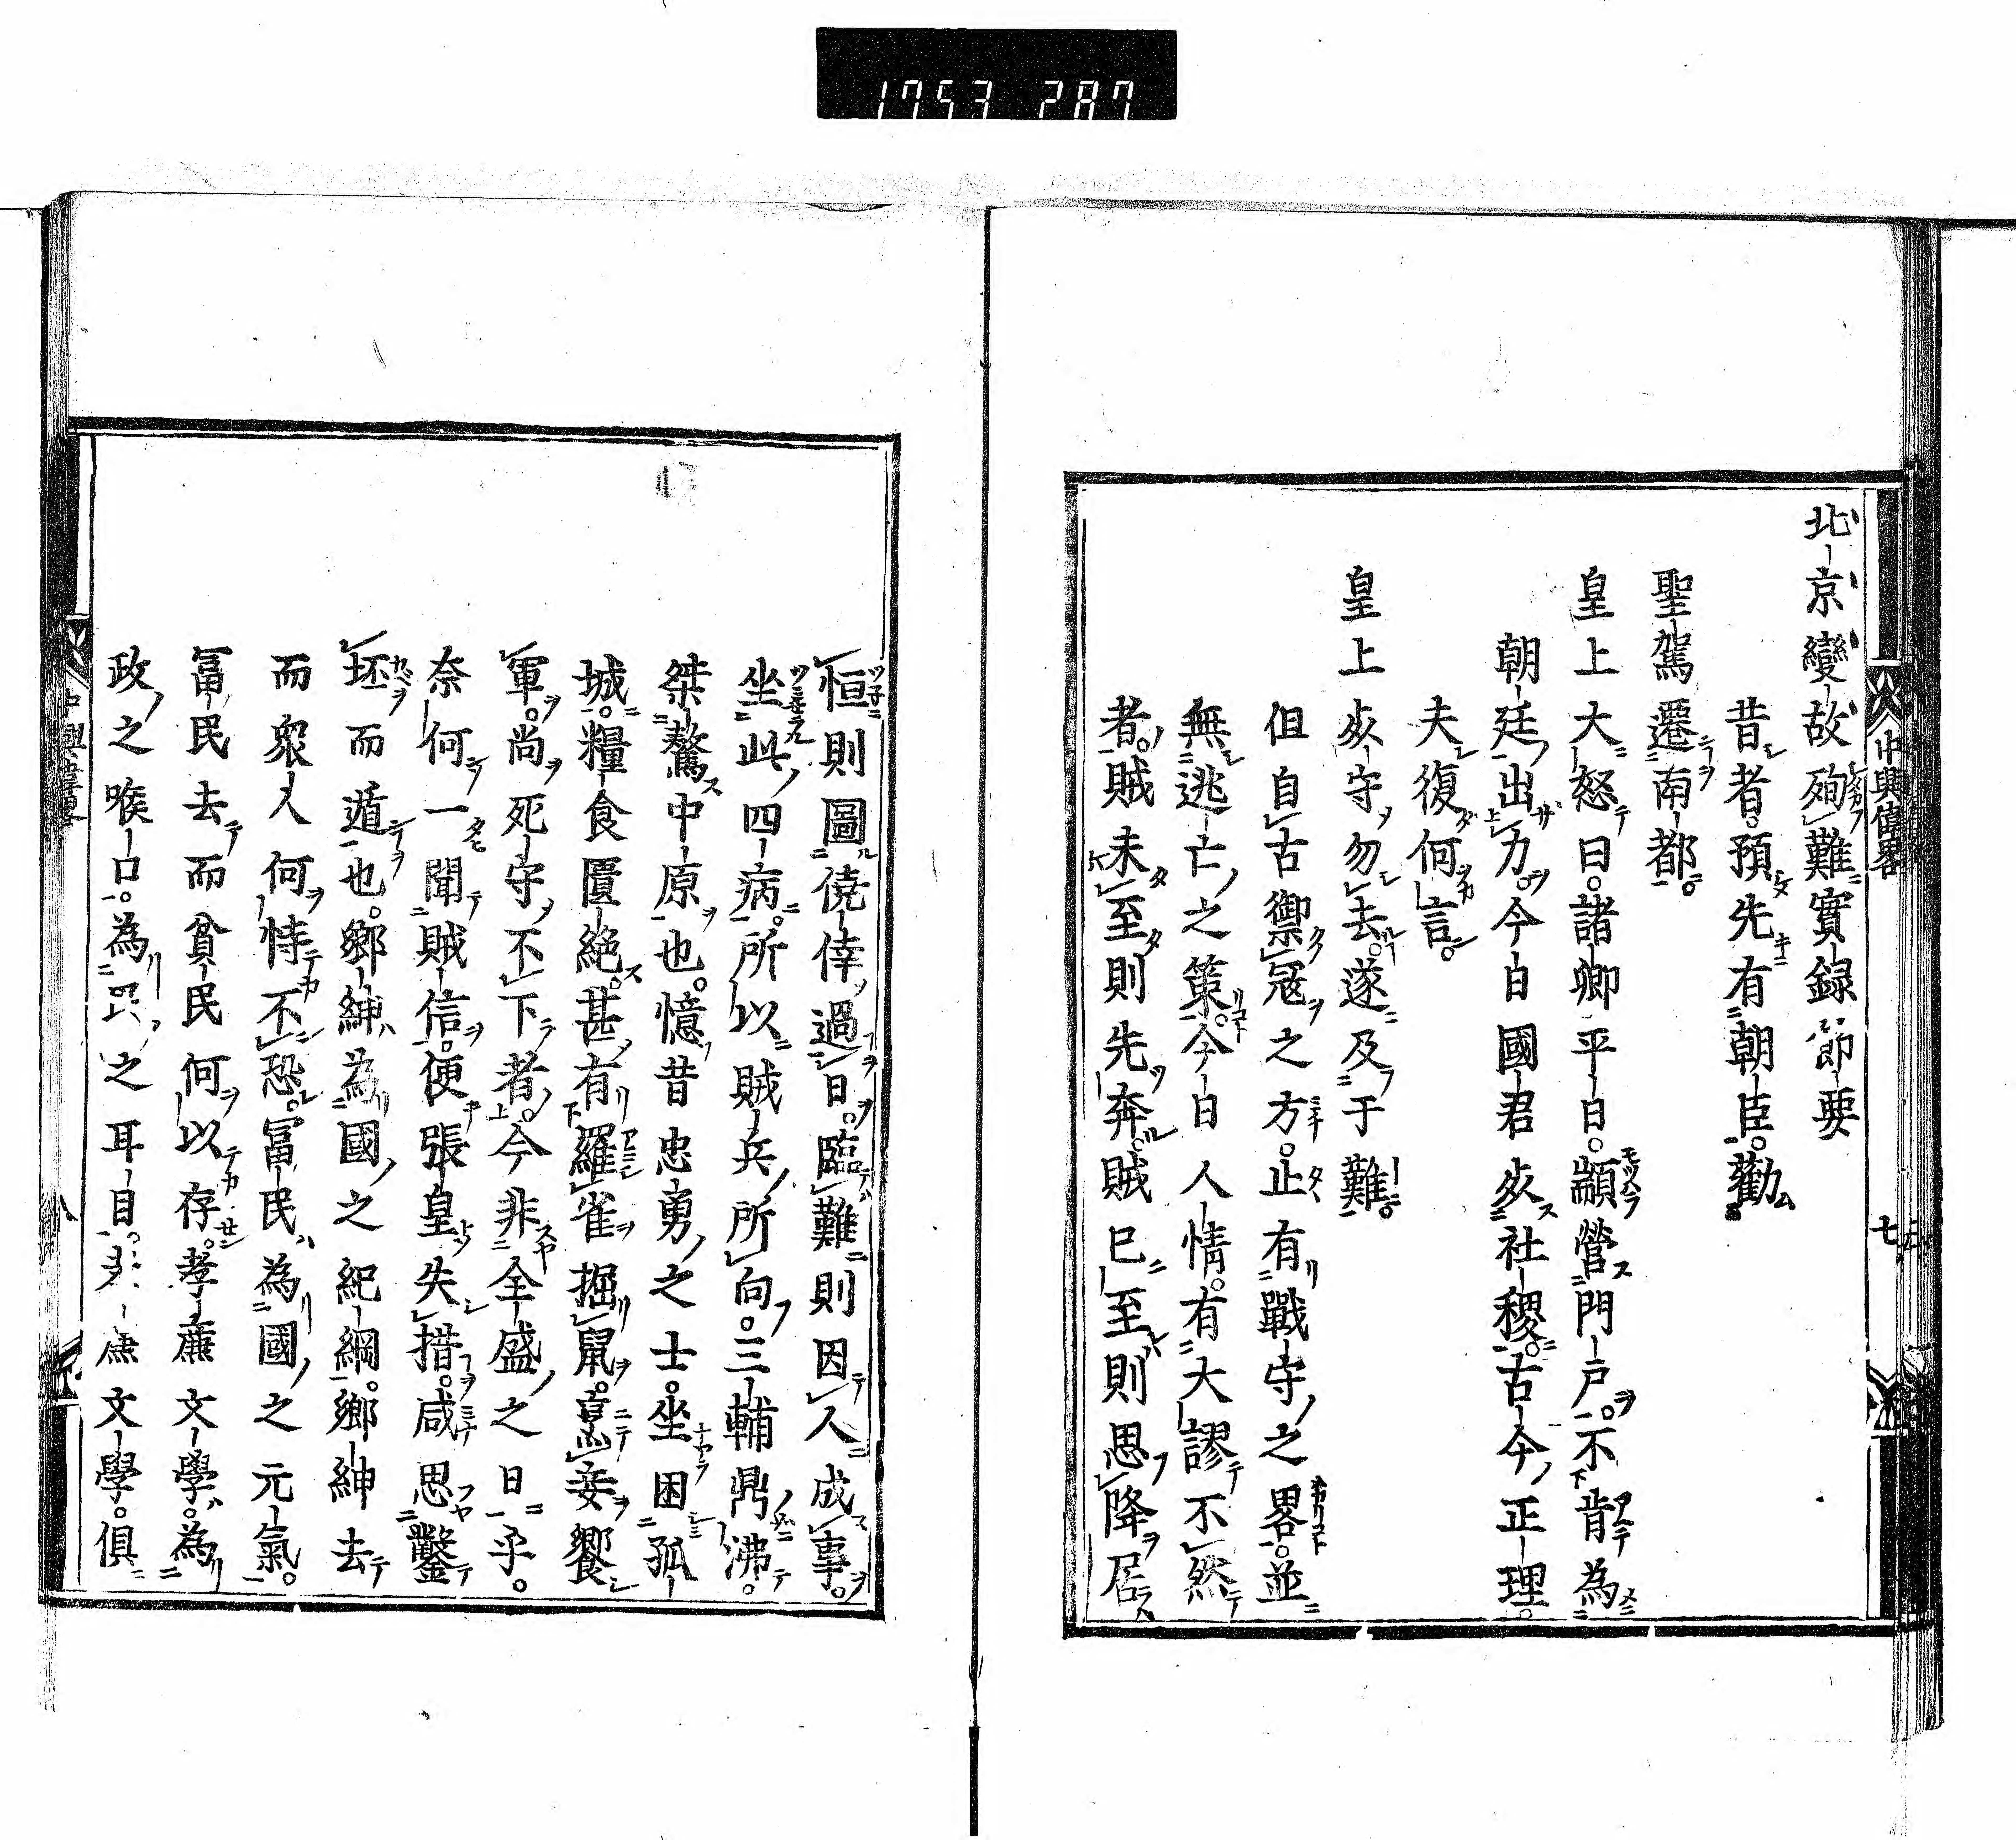 1753 287
中興偉畧
七
北京變故殉難實録節要
昔者。預先有朝臣。勸
聖駕遷南都。
皇上大怒曰。諸卿平日。顓營門戸。不肯為
朝廷出力。今日國君死社稷。古今正理。
夫復何言。
皇上死守勿去。遂及于難。
但自古禦冦之方。止有戰守之畧。並
無逃亡之策。今日人情。有大謬不然
者。賊未至則先奔。賊已至則思降。居
恒則圖僥倖過日。臨難則因人成事。
坐此四病。所以賊兵所向。三輔鼎沸。
桀驁中原也。憶昔忠勇之士。坐困孤
城。糧食匱絶。甚有羅雀掘鼠。烹妾饗
軍。尚死守不下者。今非全盛之日乎。
奈何一聞賊信。便張皇失措。咸思鑿
坯而遁也。鄉紳為國之紀綱。鄉紳去
而衆人何恃不恐。冨民為國之元氣。
冨民去而貧民何以存。孝廉文學。為
政之喉口。為民之耳目。孝廉文學。俱
中興偉畧
八